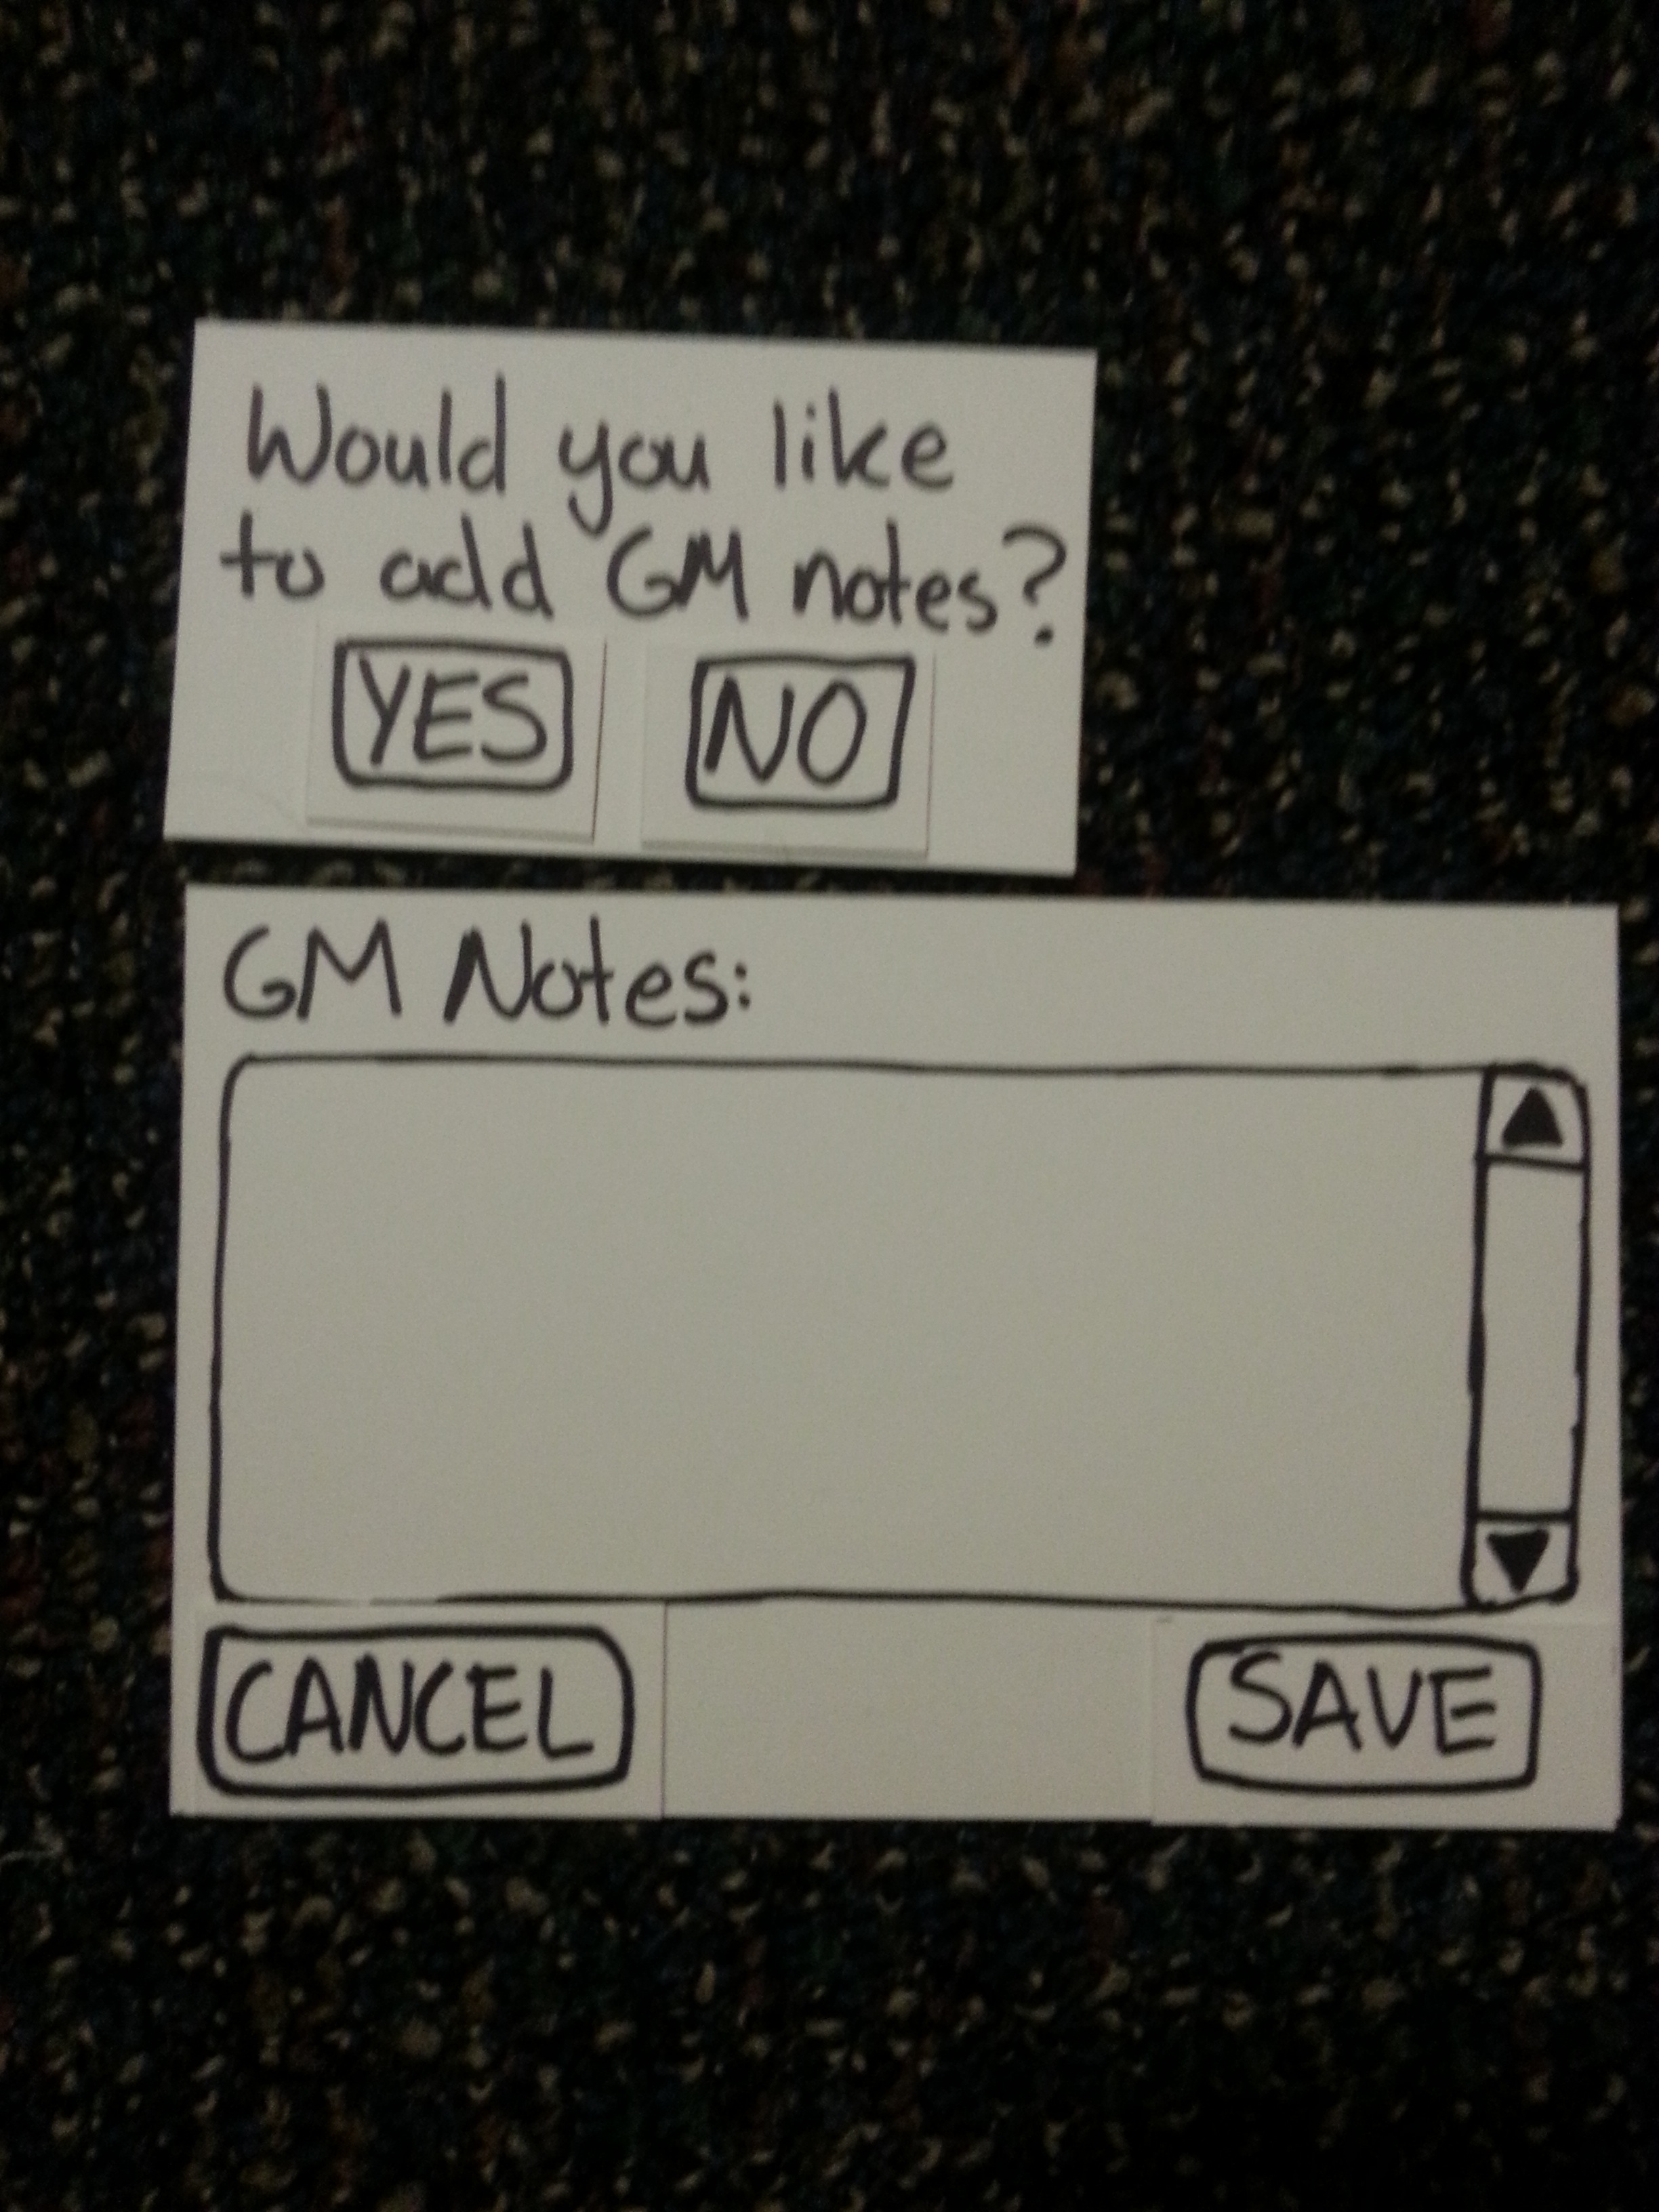 Would you like
to add GM notes?
YES NO
GM Notes:
CANCEL SAVE